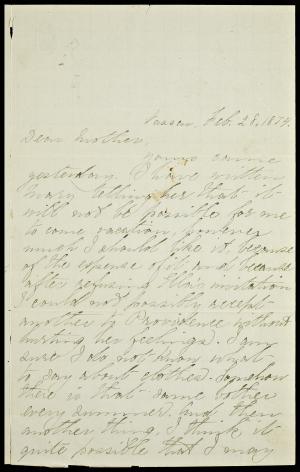 Vassar, Feb. 28, 1874.
Dear Mother,
Yours came
yesterday. I have written
Mary telling her that it
will not be possible for me
to come vacation, however
much I should like it because
of the expense of it and because
after refusing Ella's invitation
I could not possibly accept
another to Providence without
hurting her feelings. I am
sure I do not know what
to say about clothes. Somehow
there is that same bother
every summer. And then
another thing, I think it
quite possible that I may